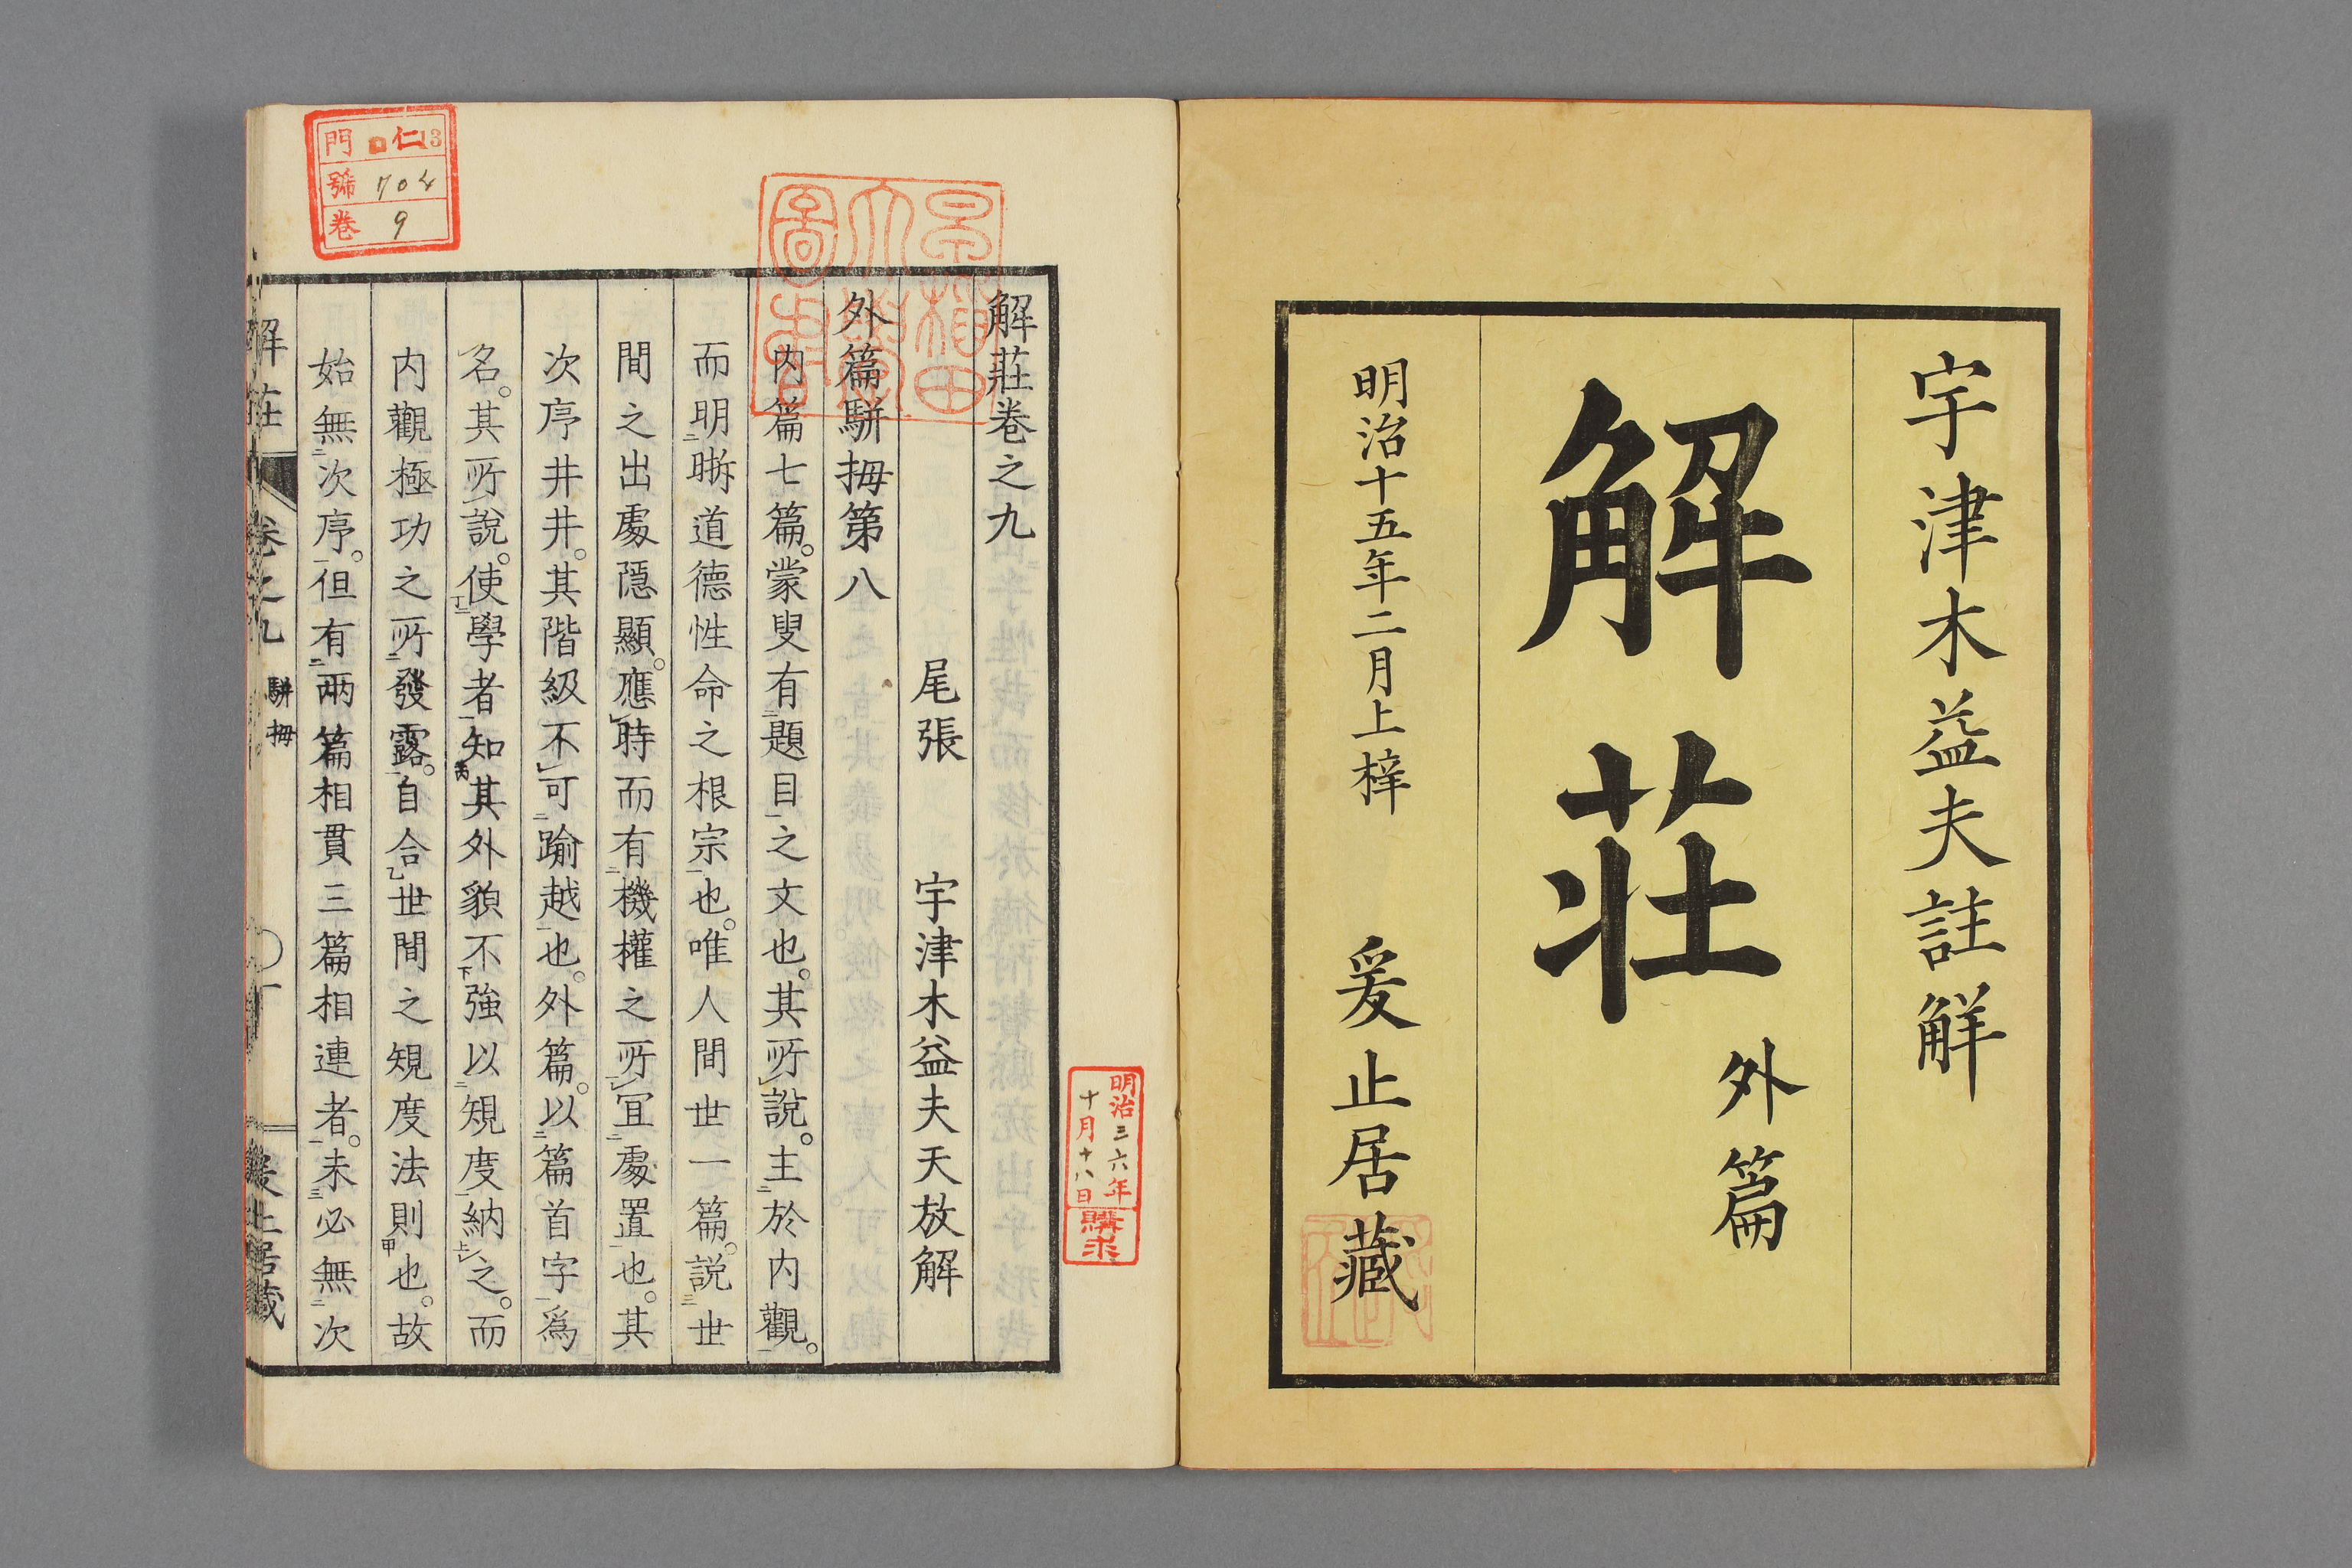 宇津木益夫註解
解莊
外篇
明治十五年二月上梓
爰止居藏
解莊卷之九
尾張 宇津木益夫天放解
外篇駢拇第八
内篇七篇。蒙叟有二題目一之文也。其所レ説。主二於内觀一。
而明二晰道德性命之根宗一也。唯人間世一篇。説三世
間之出處隱顯。應レ時而有二機權之所一レ冝二處置一也。其
次序井井。其階級不レ可二踰越一也。外篇。以二篇首字一爲
レ名。其所レ説。使丁二學者一知丙其外貌不下強以二規度一納上レ之。而
内觀極功之所二發露一。自合乙世間之規度法則甲也。故
始無二次序一。但有二兩篇相貫三篇相連者一。未三必無二次
解莊 卷之九 駢拇 〇一 爰止居藏
門 仁13
號 704
卷 9
明治三六年
十月十八日
購求